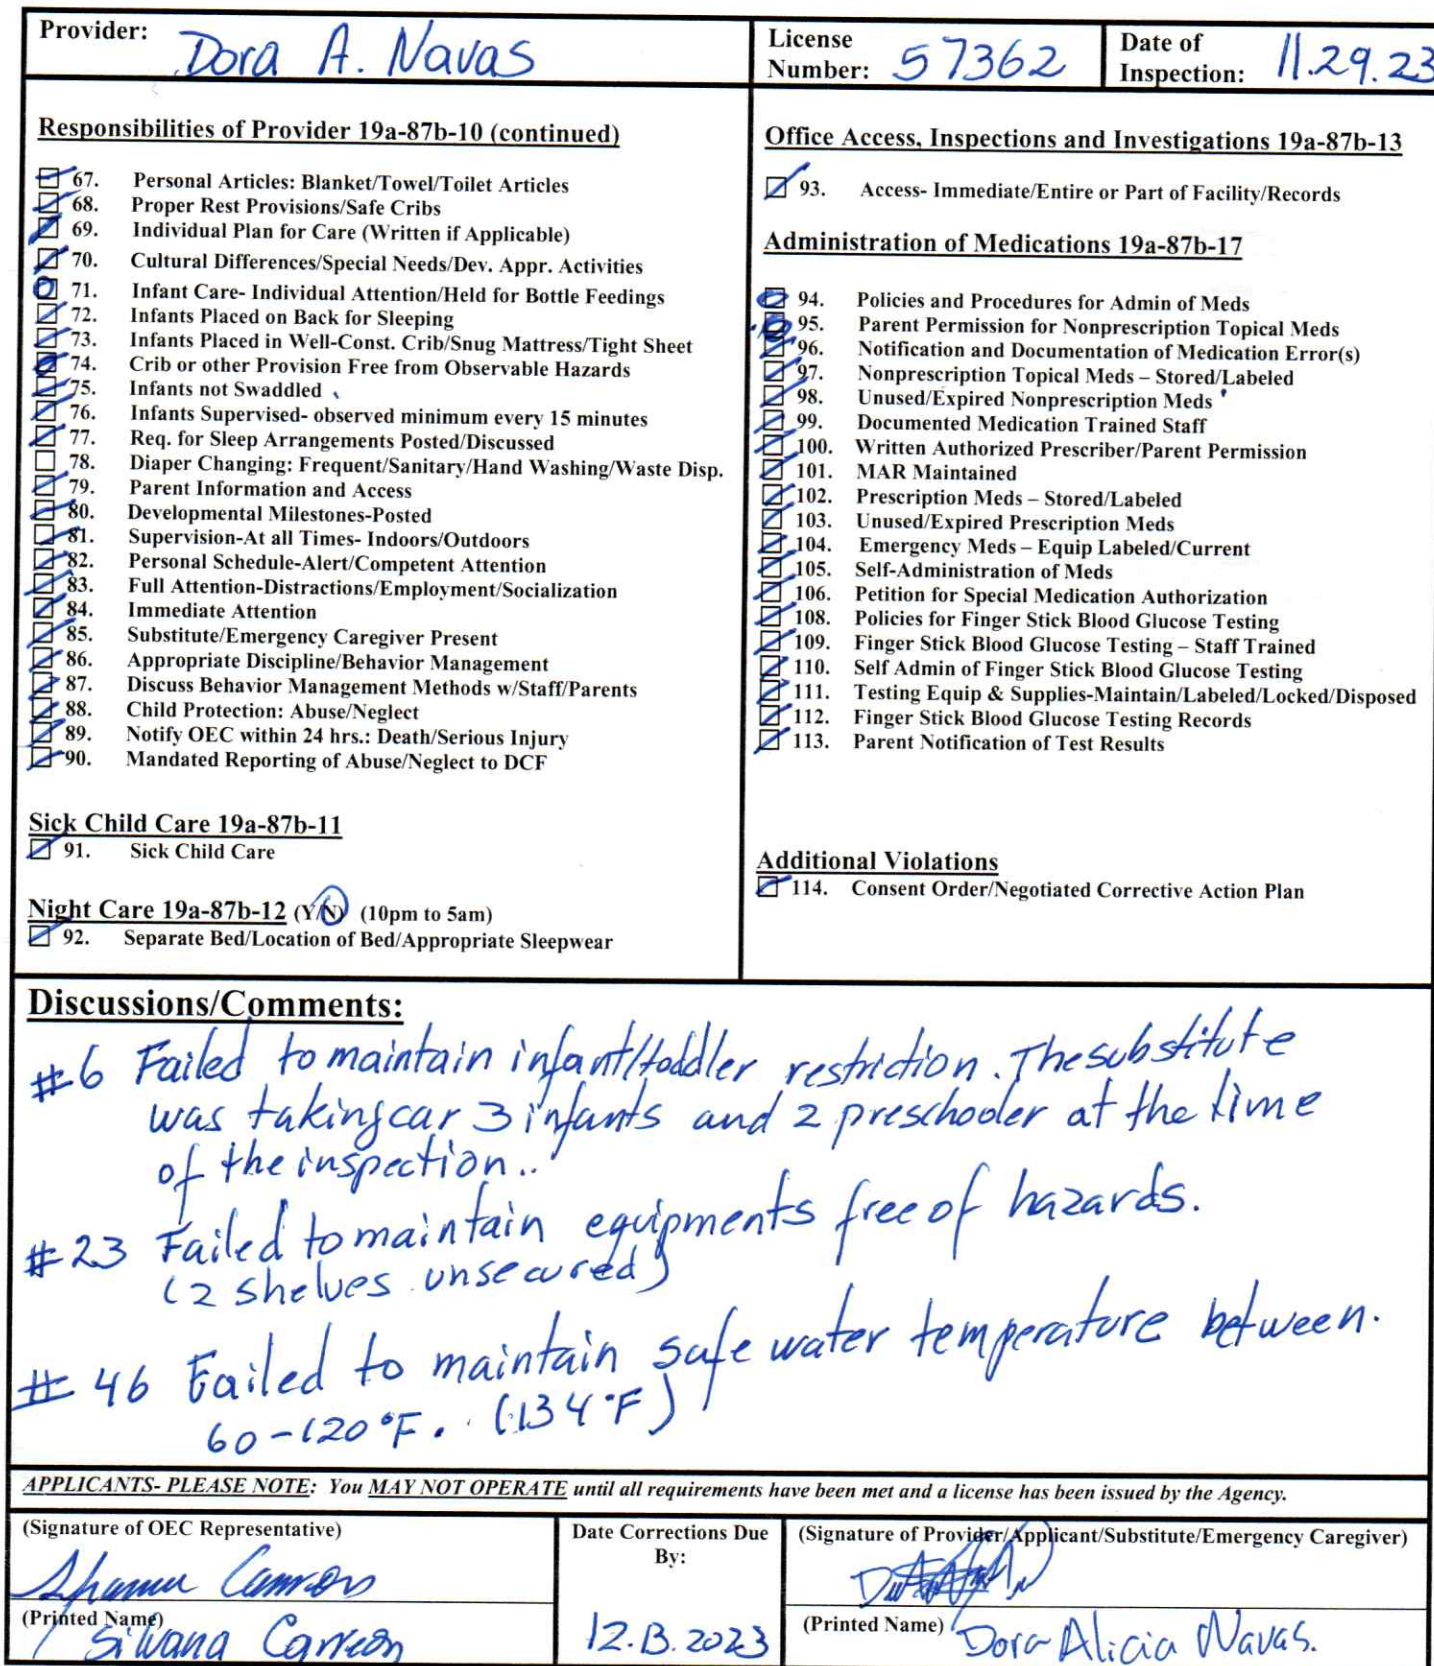 Provider: Dora A. Navas
License Number: 57362
Date of Inspection: 11.29.23
Responsibilities of Provider 19a-87b-10 (continued)
67. Personal Articles: Blanket/Towel/Toilet Articles
68. Proper Rest Provisions/Safe Cribs
69. Individual Plan for Care (Written if Applicable)
70. Cultural Differences/Special Needs/Dev. Appr. Activities
71. Infant Care- Individual Attention/Held for Bottle Feedings
72. Infants Placed on Back for Sleeping
73. Infants Placed in Well-Const. Crib/Snug Mattress/Tight Sheet
74. Crib or other Provision Free from Observable Hazards
75. Infants not Swaddled
76. Infants Supervised- observed minimum every 15 minutes
77. Req. for Sleep Arrangements Posted/Discussed
78. Diaper Changing: Frequent/Sanitary/Hand Washing/Waste Disp.
79. Parent Information and Access
80. Developmental Milestones-Posted
81. Supervision-At all Times- Indoors/Outdoors
82. Personal Schedule-Alert/Competent Attention
83. Full Attention-Distractions/Employment/Socialization
84. Immediate Attention
85. Substitute/Emergency Caregiver Present
86. Appropriate Discipline/Behavior Management
87. Discuss Behavior Management Methods w/Staff/Parents
88. Child Protection: Abuse/Neglect
89. Notify OEC within 24 hrs.: Death/Serious Injury
90. Mandated Reporting of Abuse/Neglect to DCF
Sick Child Care 19a-87b-11
91. Sick Child Care
Night Care 19a-87b-12 (Y/N) (10pm to 5am)
92. Separate Bed/Location of Bed/Appropriate Sleepwear
Office Access, Inspections and Investigations 19a-87b-13
93. Access- Immediate/Entire or Part of Facility/Records
Administration of Medications 19a-87b-17
94. Policies and Procedures for Admin of Meds
95. Parent Permission for Nonprescription Topical Meds
96. Notification and Documentation of Medication Error(s)
97. Nonprescription Topical Meds – Stored/Labeled
98. Unused/Expired Nonprescription Meds
99. Documented Medication Trained Staff
100. Written Authorized Prescriber/Parent Permission
101. MAR Maintained
102. Prescription Meds – Stored/Labeled
103. Unused/Expired Prescription Meds
104. Emergency Meds – Equip Labeled/Current
105. Self-Administration of Meds
106. Petition for Special Medication Authorization
108. Policies for Finger Stick Blood Glucose Testing
109. Finger Stick Blood Glucose Testing – Staff Trained
110. Self Admin of Finger Stick Blood Glucose Testing
111. Testing Equip & Supplies-Maintain/Labeled/Locked/Disposed
112. Finger Stick Blood Glucose Testing Records
113. Parent Notification of Test Results
Additional Violations
114. Consent Order/Negotiated Corrective Action Plan
Discussions/Comments:
#6 Failed to maintain infant/toddler restriction. The substitute
was taking car 3 infants and 2 preschooler at the time
of the inspection..
#23 Failed to maintain equipments free of hazards.
(2 shelves unsecured)
#46 Failed to maintain safe water temperature between.
60-120°F. (134°F)
APPLICANTS- PLEASE NOTE: You MAY NOT OPERATE until all requirements have been met and a license has been issued by the Agency.
(Signature of OEC Representative)
(Printed Name) Silvana Carreon
Date Corrections Due
By:
12.13.2023
(Signature of Provider/Applicant/Substitute/Emergency Caregiver)
(Printed Name) Dora Alicia Navas.